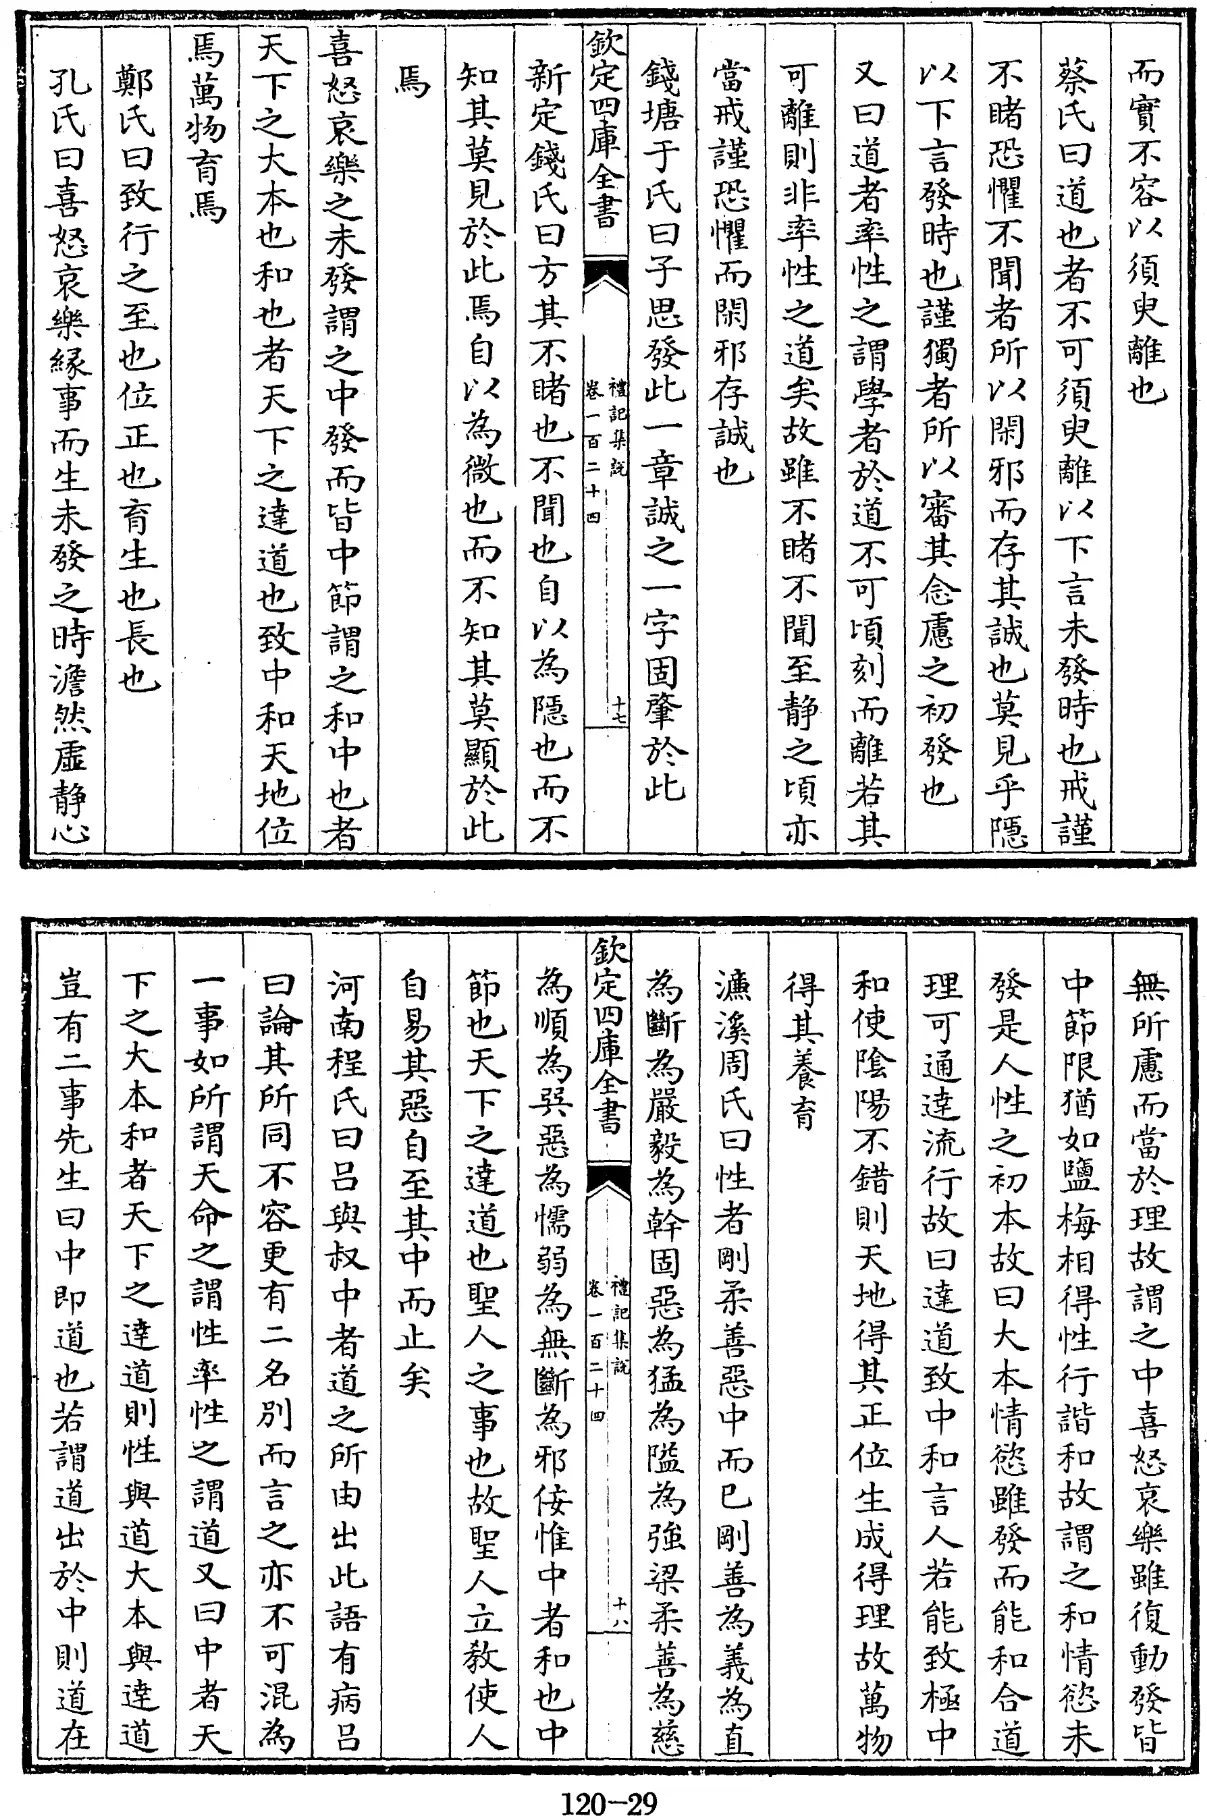 而實不容以須臾離也
蔡氏曰道也者不可須臾離以下言未發時也戒謹
不睹恐懼不聞者所以閑邪而存其誠也莫見乎隱
以下言發時也謹獨者所以審其念慮之初發也
又曰道者率性之謂學者於道不可頃刻而離若其
可離則非率性之道矣故雖不睹不聞至静之頃亦
當戒謹恐懼而閑邪存誠也
錢塘于氏曰子思發此一章誠之一字固肇於此
欽定四庫全書
禮記集說
卷一百二十四
十七
新定錢氏曰方其不睹也不聞也自以為隱也而不
知其莫見於此焉自以為微也而不知其莫顯於此
焉
喜怒哀樂之未發謂之中發而皆中節謂之和中也者
天下之大本也和也者天下之達道也致中和天地位
焉萬物育焉
鄭氏曰致行之至也位正也育生也長也
孔氏曰喜怒哀樂緣事而生未發之時澹然虛静心
無所慮而當於理故謂之中喜怒哀樂雖復動發皆
中節限猶如鹽梅相得性行諧和故謂之和情慾未
發是人性之初本故曰大本情慾雖發而能和合道
理可通達流行故曰達道致中和言人若能致極中
和使陰陽不錯則天地得其正位生成得理故萬物
得其養育
濂溪周氏曰性者剛柔善惡中而已剛善為義為直
為斷為嚴毅為幹固惡為猛為隘為強梁柔善為慈
欽定四庫全書
禮記集說
卷一百二十四
十八
為順為巽惡為懦弱為無斷為邪佞惟中者和也中
節也天下之達道也聖人之事也故聖人立教使人
自易其惡自至其中而止矣
河南程氏曰吕與叔中者道之所由出此語有病吕
曰論其所同不容更有二名别而言之亦不可混為
一事如所謂天命之謂性率性之謂道又曰中者天
下之大本和者天下之達道則性與道大本與達道
豈有二事先生曰中即道也若謂道出於中則道在
120-29